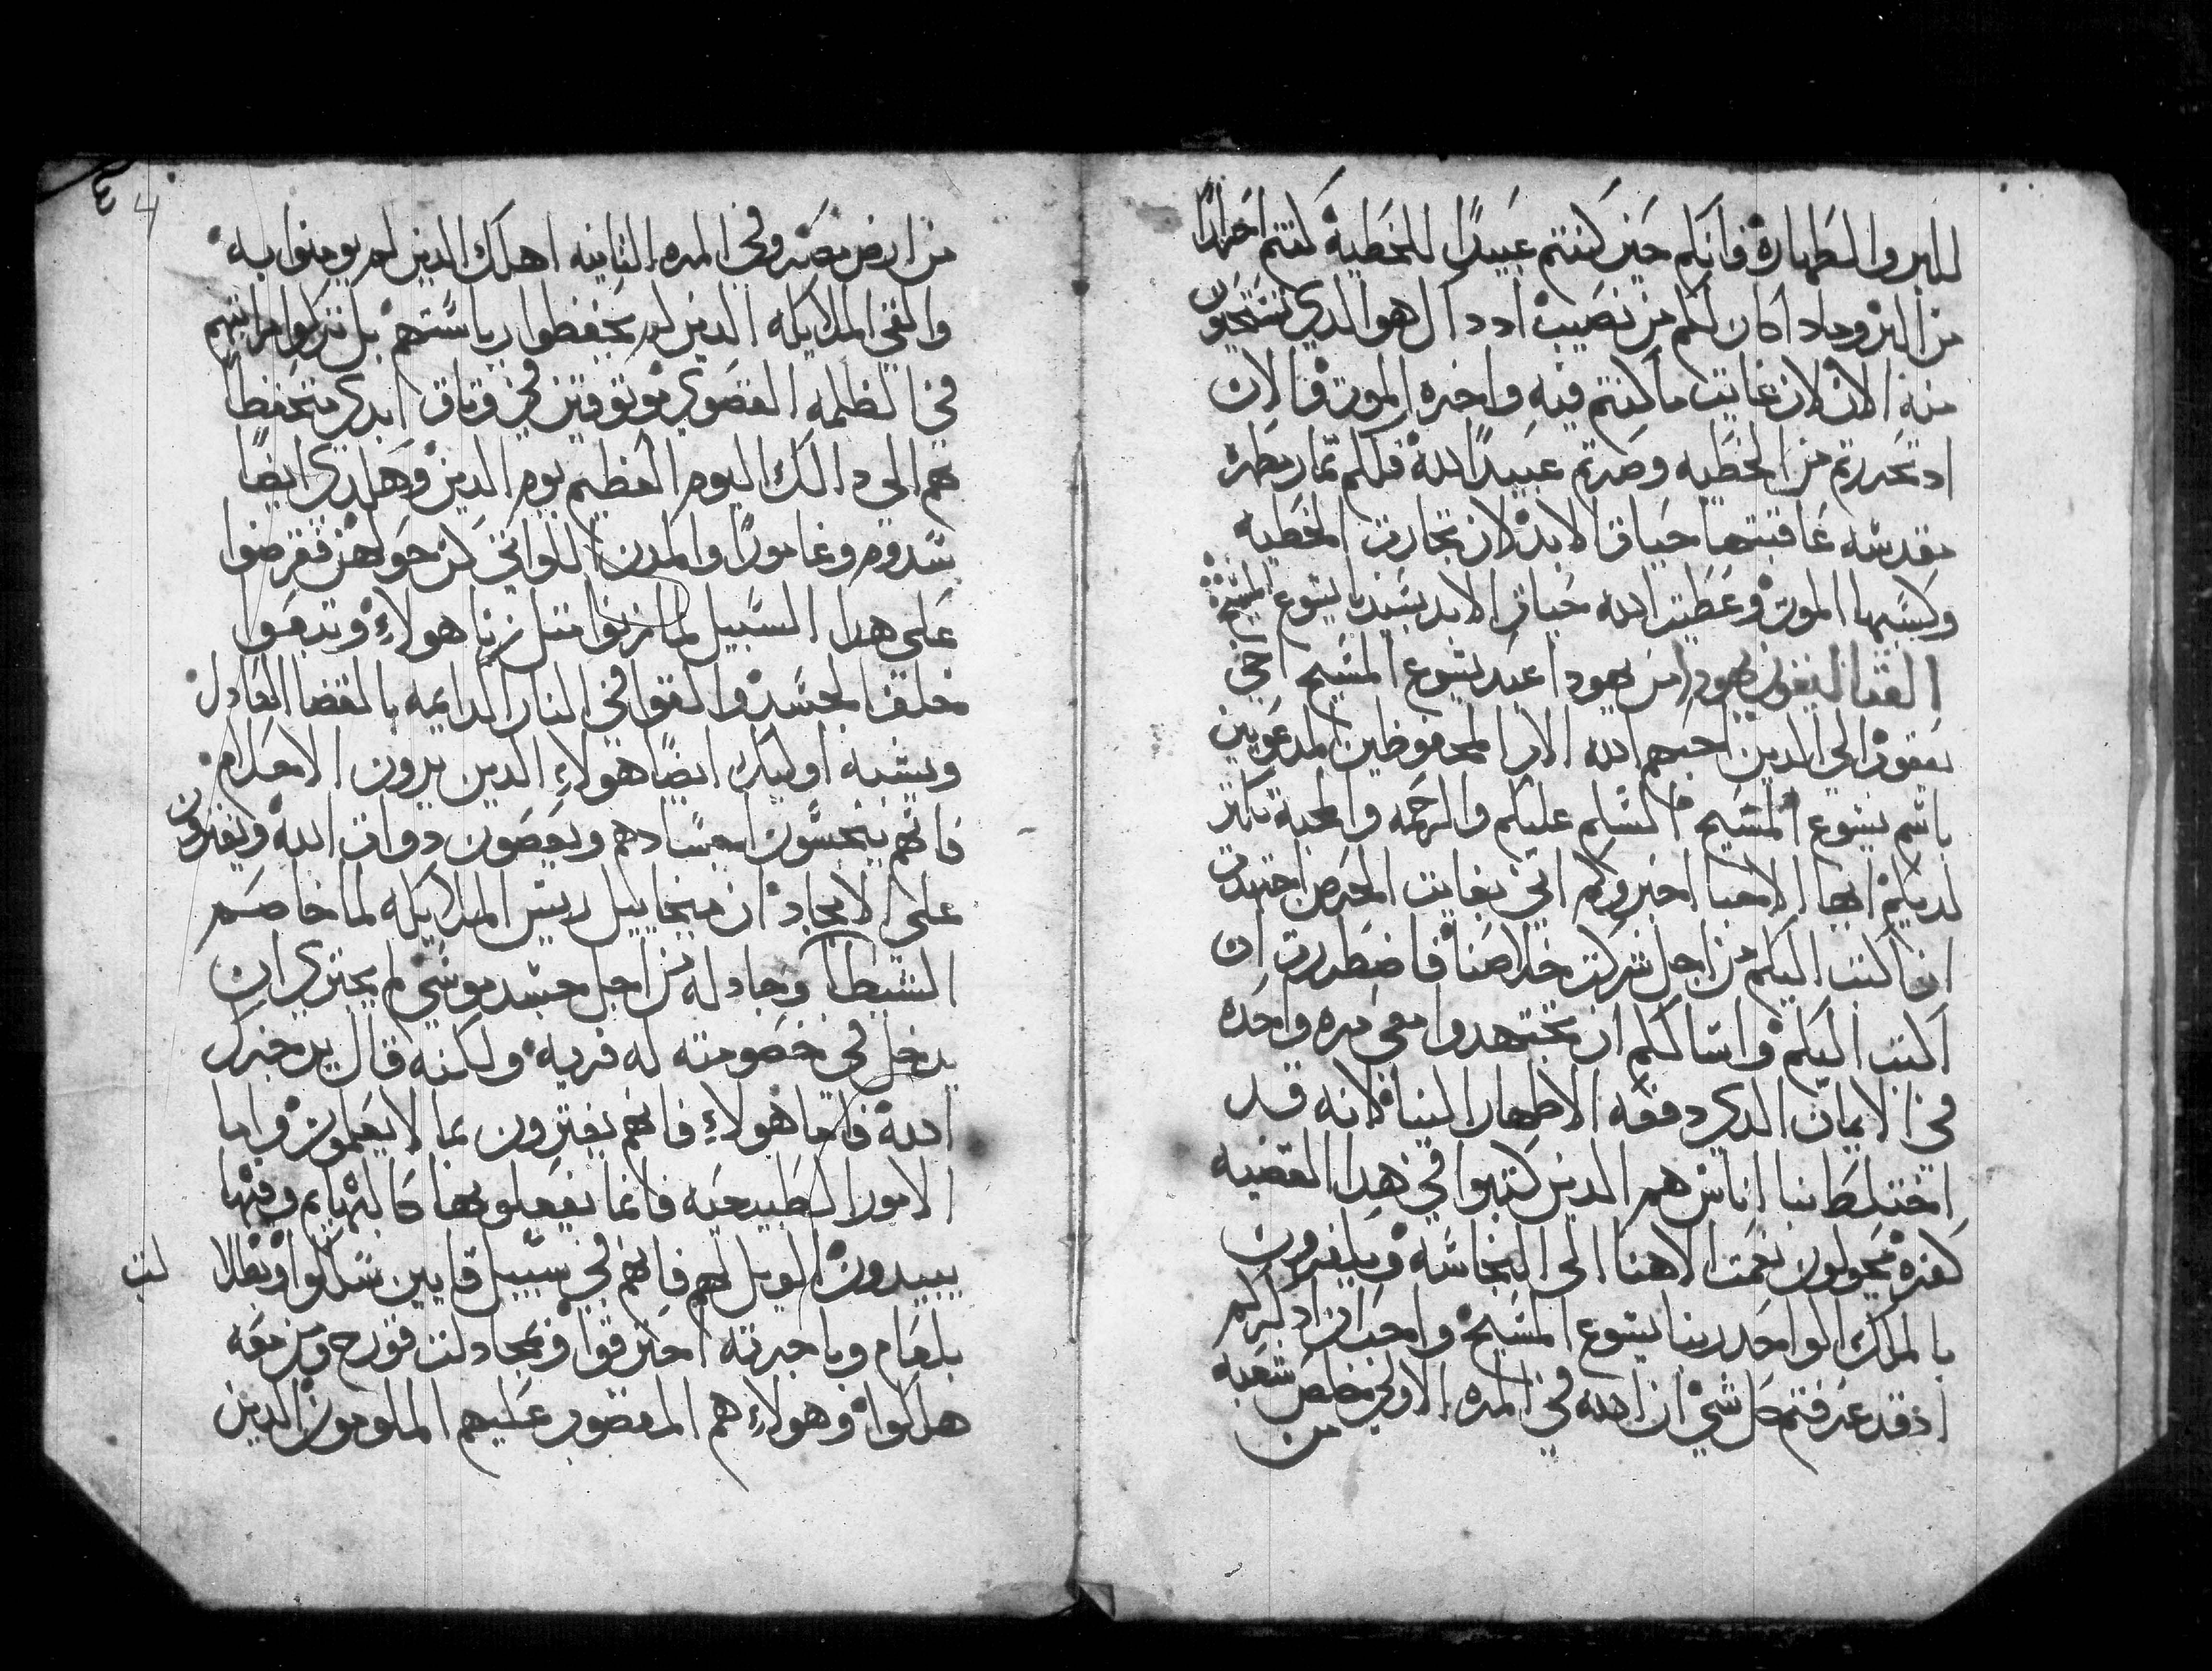 للبر والطهارة فانكم حين كنتم عبيدًا للخطية كنتم احرارًا
من البر وماد اكان لكم من نصيب اد داك هو الدي تستحيون
منه الان لان غايت ما كنتم فيه واخره الموت فالان
اد تحررتم من الخطيه وصرتم عبيدًا لله فلكم ثمار مطهره
مقدسه عاقبتها حياة الابد لان تجارت الخطيه
وكسبها الموت وعطيت الله حياة الابد بسيدنا يسوع المسيح
القتاليقون يهودا من يهودا عبد يسوع المسيح اخي
يعقوب الي الدين احبهم الله الاب المحفوظين المدعويين
باسم يسوع المسيح السلم عليكم والرحمه والمحبة تكثر
لديكم ايها الاحبا اخبروكم اني بغايت الحرص اجتهدت
ان اكتب اليكم من اجل شركت خلاصنا فاضطررت ان
اكتب اليكم واسالكم ان تجتهدوا معي مره واحده
في الايمان الدي دفعه الاطهار الينا لانه قد
اختلط بنا اناس هم الدين كتبوا في هدا القضيه
كفره يحولون نعمت الاهنا الى النجاسه ويكفرون
بالملك الواحد ربنا يسوع المسيح واحب ان ادكركم
اذ قد عرفتم كل شي ان الله في المره الاولي خلص شعبه
من
من ارض مصر وفي المره الثانيه اهلك الدين لم يومنوا به
والقي الملايكه الدين لم يحفظوا رياستهم بل تركوا مراتبهم
في الظلمه القصوي موتوقين في وتاق ابدي متحفظًا
بهم الى دالك اليوم العظيم يوم الدين وهكدي ايضًا
سدوم وغامورا والمدن اللواتي كن حولهن فقرضوا
على هدا السبيل لما زنوا متل زنا هولاءِ وتبعوا
خلف الجسد والقوا في النار الدايمه بالقضا العادل
ويشبه اوليك ايضًا هولاءِ الدين يرون الاحلام
فانهم ينجسون اجسادهم ويعصون دوات الله ويفترون
على الامجاد ان ميخاييل ريس الملايكه لما خاصم
الشيطان وجادله من اجل جسد موسي لم يجتري ان
يدخل في خصومته له فريه ولكنه قال يدخرك
الله فاما هولاءِ فانهم يفترون بما لا يعلمون واما
الامور الطبيعيه فانما يفعلوبها كالبهايم وفيها
يبيدون الويل لهم فانهم في سبيل قايين سلكوا وبضلا
لت
بلعام وباجرته احترقوا وبمجادلت قورح ومن معه
هلكوا وهولاءِ هم المغضوب عليهم الملومون الدين
٤ 4